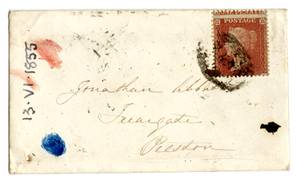 POSTAGE
13·VI·1855
Jonathan
Friargate
Preston